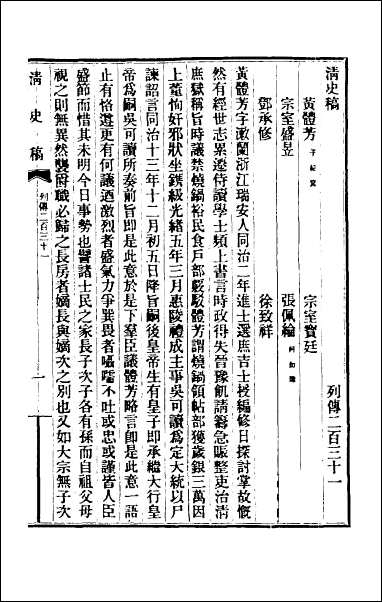 清史稿
列傳二百三十一
黃體芳 子紹箕
宗室寶廷
宗室盛昱
張佩綸
鄧承修
徐致祥
黃體芳字漱蘭浙江瑞安人同治二年進士選庶吉士授編修日探討掌故慨
然有經世志累遷侍讀學士頻上書言時政得失晉豫飢請籌急賑整吏治清
庶獄稱旨時議禁燒鍋裕民食戶部駁駁體芳謂燒鍋領帖部獲歲銀三萬因
上蓳恂奸邪狀坐鐫級光緒五年三月惠陵禮成主事吳可讀爲定大統以尸
諫詔言同治十三年十二月初五日降旨嗣後皇帝生有皇子即承繼大行皇
帝爲嗣吳可讀所奏前旨即是此意於是下羣臣議體芳略言卽是此意一語
止有恪遵更有何議迺激烈者盛氣力爭異畏者囁嚅不吐或忠或謹皆人臣
盛節而惜其未明今日事勢也譬諸士民之家長子次子各有孫而自祖父母
視之則無異然襲爵職必歸之長房者嫡長與嫡次之別也又如大宗無子次
清史稿
列傳二百三十一
一